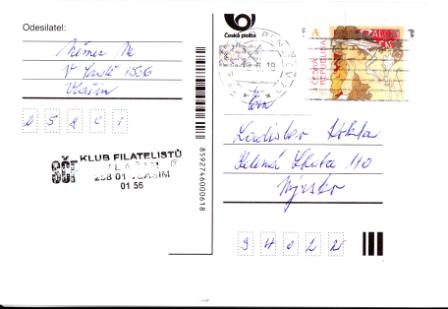 Odesilatel:
Němec
V Sadě 1556
Vlašim
2 5 8 0 1
KLUB FILATELISTŮ
258 01 VLAŠIM
01 56
8592746000618
Česká pošta
A
ČESKÁ REPUBLIKA
Ladislav
Zelená Lhota 110
Nýrsko
3 4 0 2 2